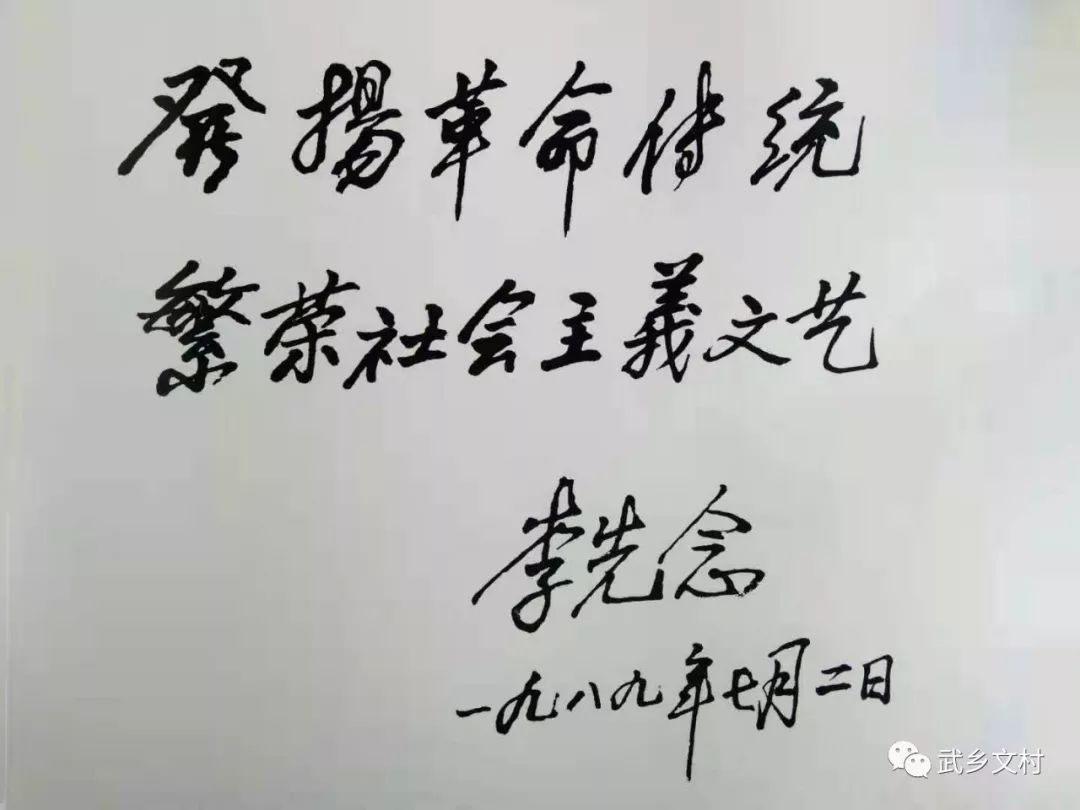 發揚革命传统
繁荣社会主義文艺
李先念
一九八九年七月二日
武乡文村